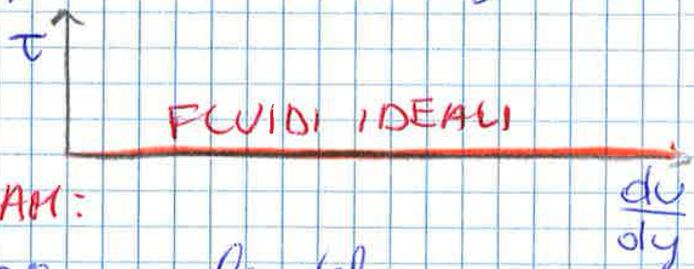 τ
FLUIDI IDEALI
du
dy
AM: